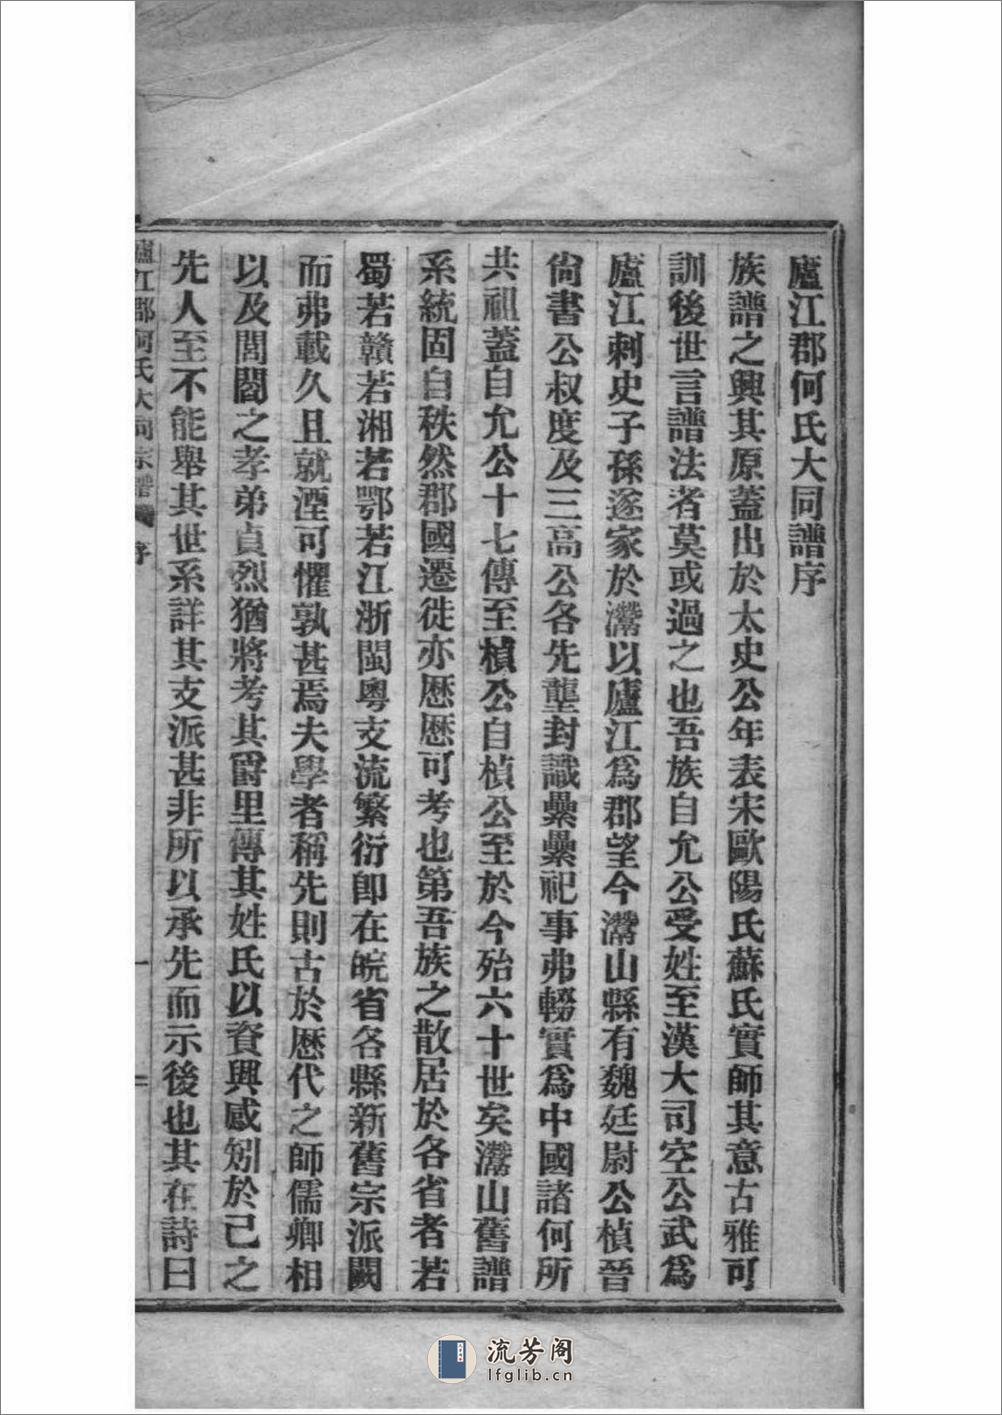 廬江郡何氏大同譜序
族譜之興其原蓋出於太史公年表宋歐陽氏蘇氏實師其意古雅可
訓後世言譜法者莫或過之也吾族自允公受姓至漢大司空公武爲
廬江刺史子孫遂家於灊以廬江爲郡望今灊山縣有魏廷尉公楨晉
尙書公叔度及三高公各先壟封識纍纍祀事弗輟實爲中國諸何所
共祖蓋自允公十七傳至楨公自楨公至於今殆六十世矣灊山舊譜
系統固自秩然郡國遷徙亦歷歷可考也第吾族之散居於各省者若
蜀若贛若湘若鄂若江浙閩粵支流繁衍卽在皖省各縣新舊宗派闕
而弗載久且就湮可懼孰甚焉夫學者稱先則古於歷代之師儒卿相
以及閭閻之孝弟貞烈猶將考其爵里傳其姓氏以資興感矧於己之
先人至不能舉其世系詳其支派甚非所以承先而示後也其在詩曰
廬江郡何氏大同宗譜 序 一
流芳阁
lfglib.cn